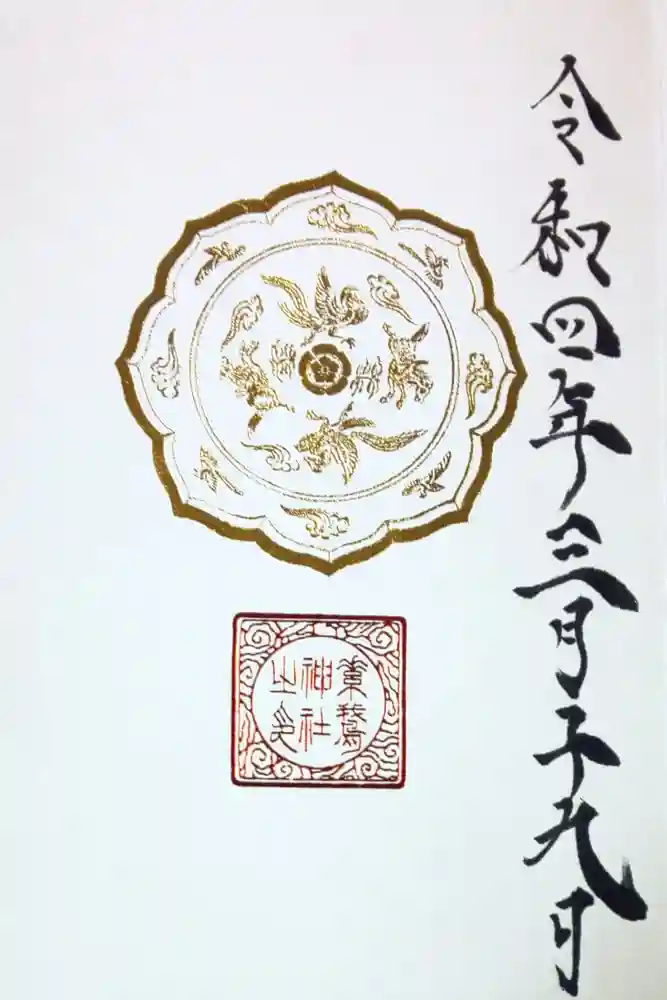 令和四年三月二十九日
素鵞
神社
之印